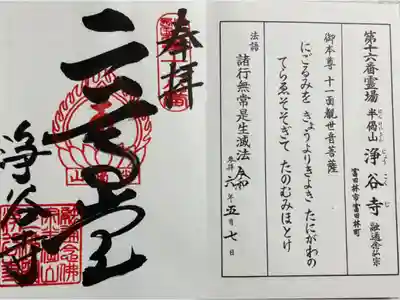 第十六番霊場 半偈山 浄谷寺 融通念仏宗
富田林市富田林町
御本尊 十一面観世音菩薩
にごるみを きょうよりきよき たにがわの
てらゑそそぎて たのむみほとけ
法語 諸行無常是生滅法
参拝 令和六年五月七日
奉拝
浄谷寺